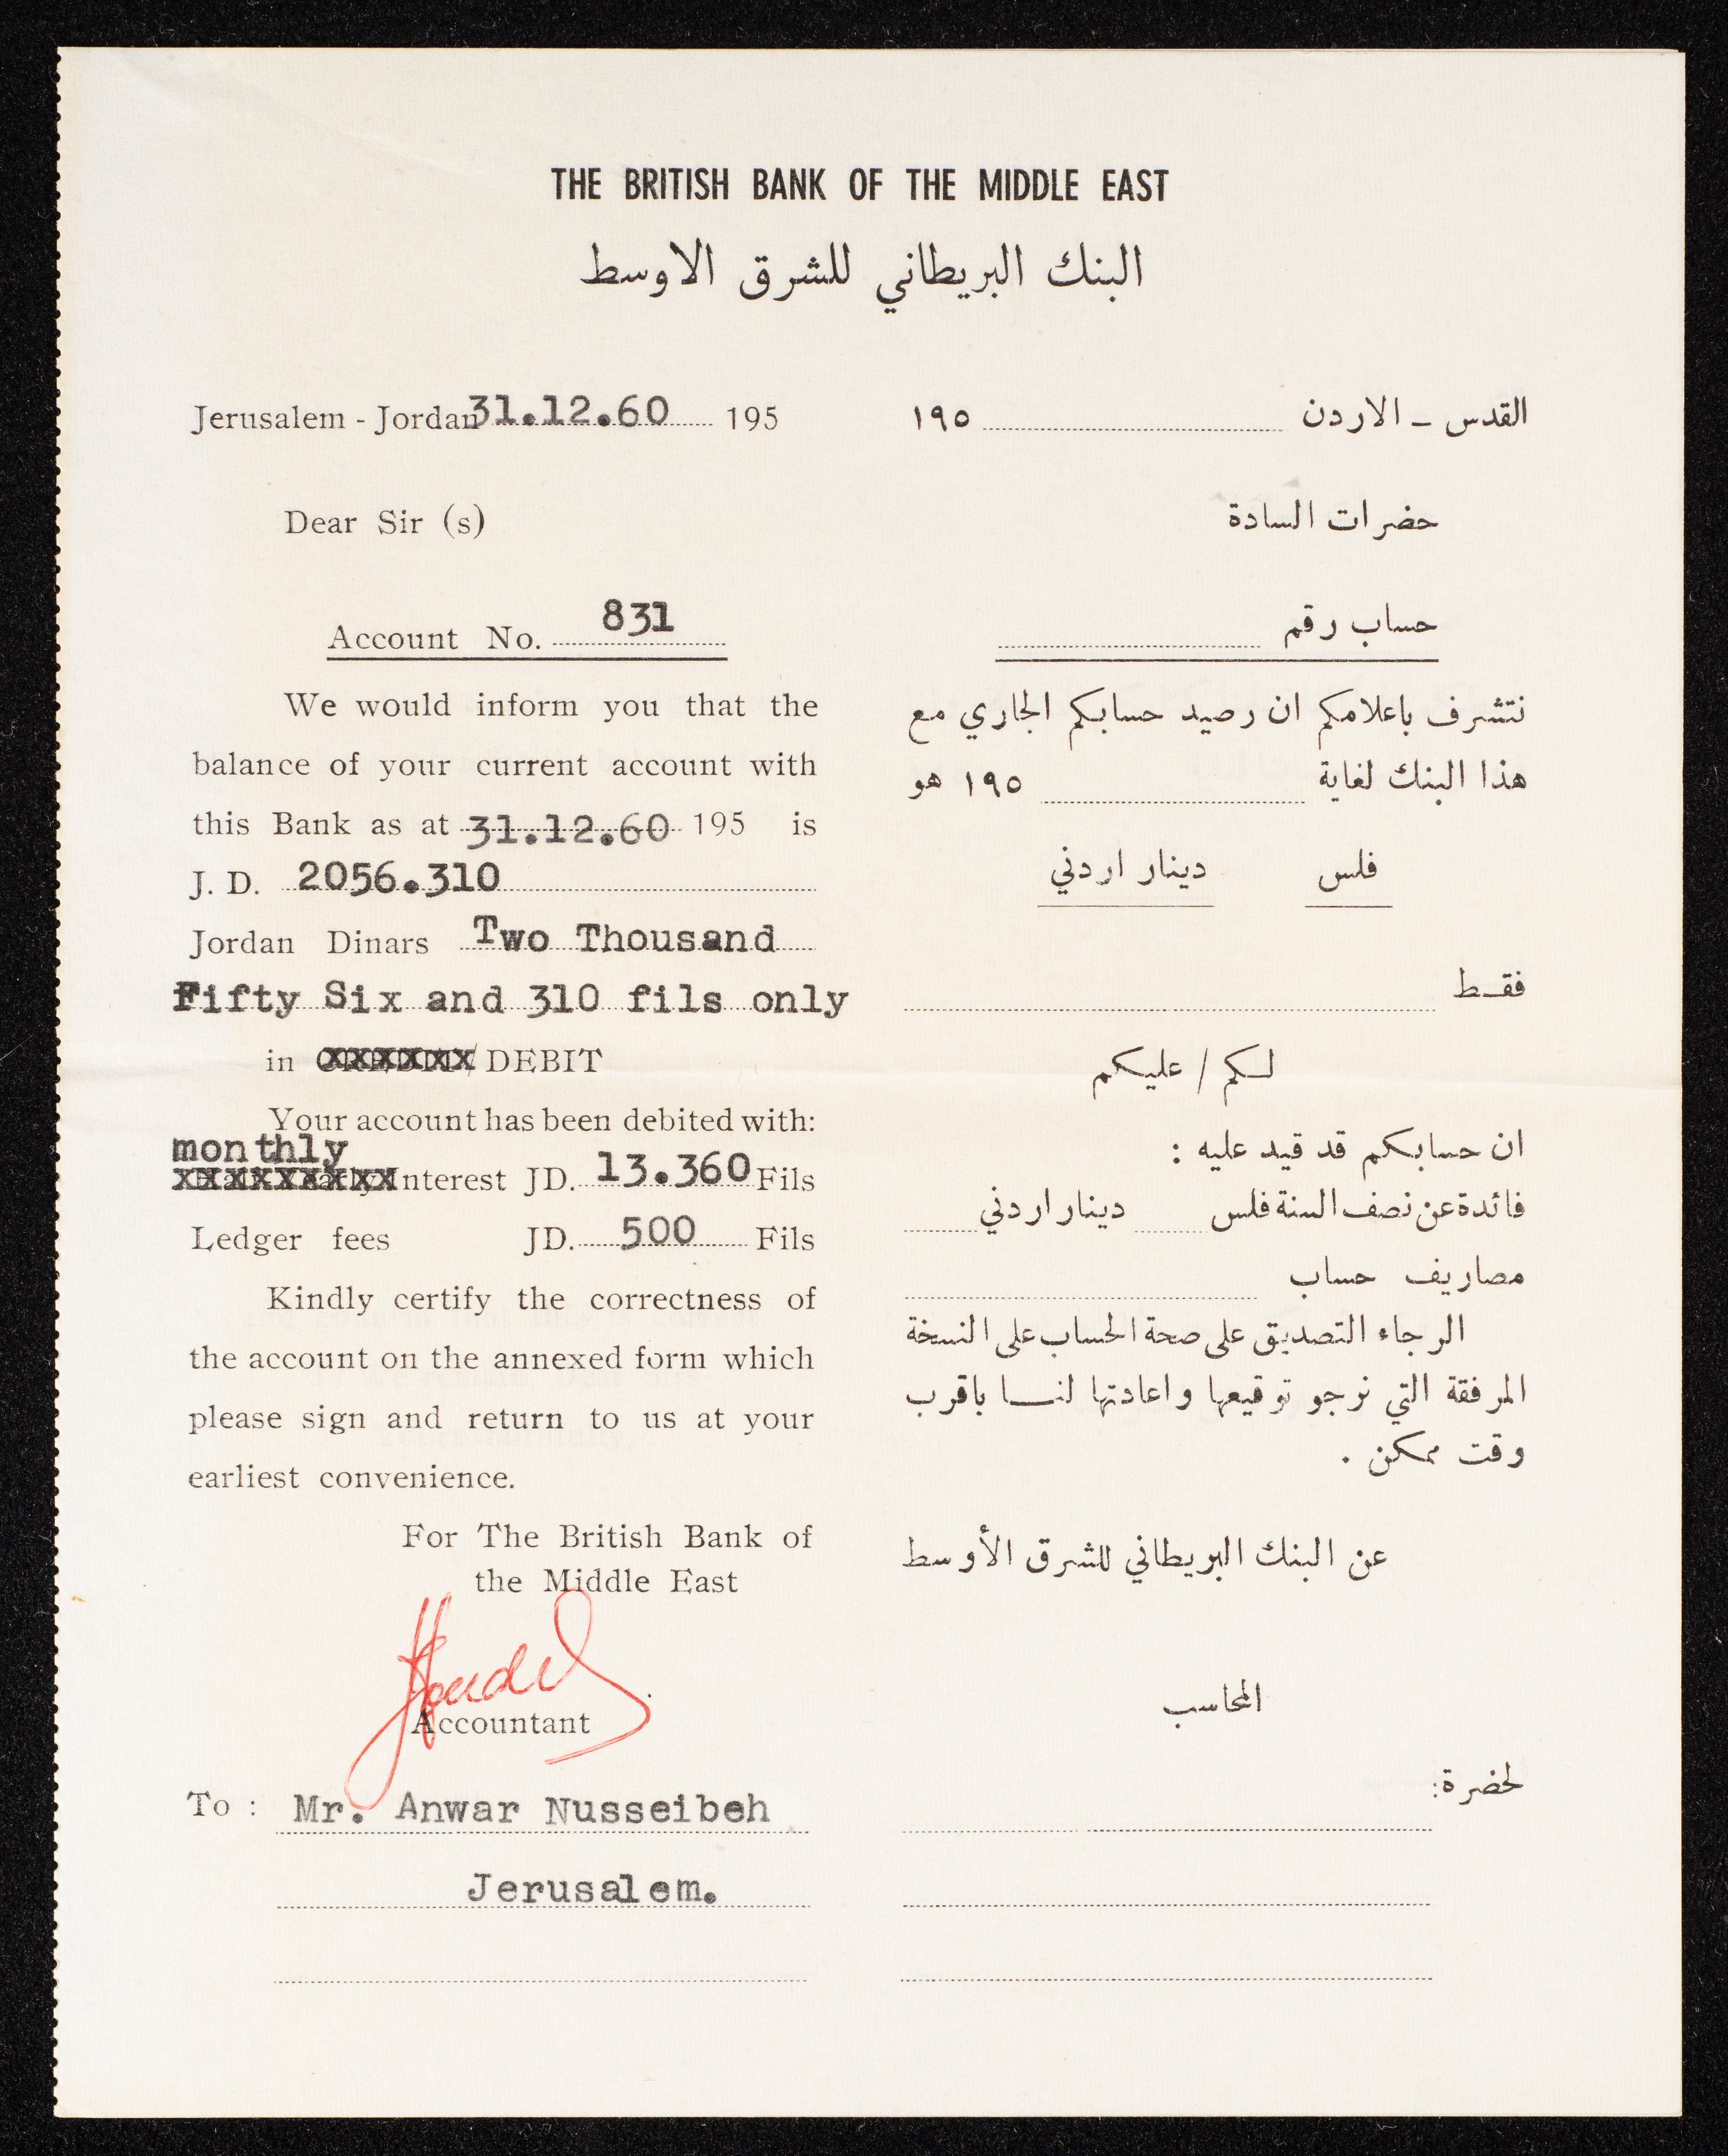 THE BRITISH BANK OF THE MIDDLE EAST
البنك البريطاني للشرق الاوسط
Jerusalem - Jordan 31.12.60 195
Dear Sir (s)
Account No. 831
We would inform you that the
balance of your current account with
this Bank as at 31.12.60 195 is
J. D. 2056.310
Jordan Dinars Two Thousand
Fifty Six and 310 fils only
in DEBIT
Your account has been debited with:
monthly
Interest JD. 13.360 Fils
Ledger fees JD. 500 Fils
Kindly certify the correctness of
the account on the annexed form which
please sign and return to us at your
earliest convenience.
For The British Bank of
the Middle East
Accountant
To : Mr. Anwar Nusseibeh
Jerusalem.
القدس - الاردن ١٩٥
حضرات السادة
حساب رقم
نتشرف باعلامكم ان رصيد حسابكم الجاري مع
هذا البنك لغاية ١٩٥ هو
فلس دينار اردني
فقط
لكم / عليكم
ان حسابكم قد قيد عليه :
فائدة عن نصف السنة فلس دينار اردني
مصاريف حساب
الرجاء التصديق على صحة الحساب على النسخة
المرفقة التي نرجو توقيعها واعادتها لنا باقرب
وقت ممكن .
عن البنك البريطاني للشرق الأوسط
المحاسب
لحضرة: